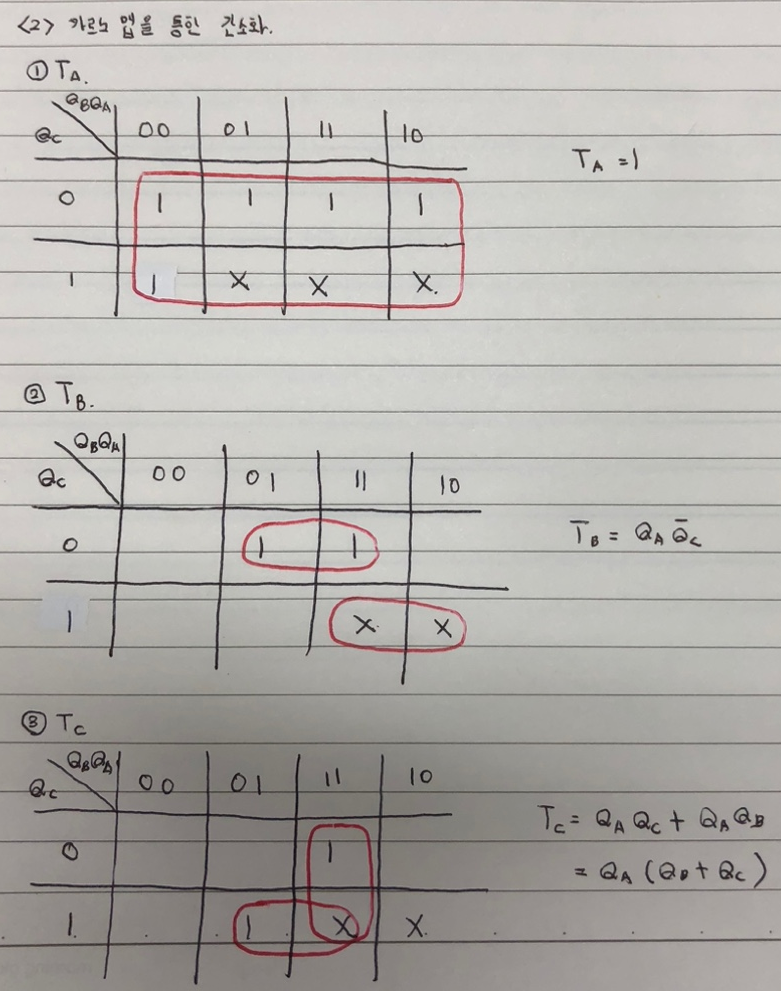 <2> 카르노 맵을 통한 간소화.
① TA.
QBQA
QC 00 01 11 10
0 1 1 1 1
1 1 X X X.
TA = 1
② TB.
QBQA
QC 00 01 11 10
0 1 1
1 X X
TB = QA Q̄C
③ TC
QBQA
QC 00 01 11 10
0 1
1 1 X X
TC = QA QC + QA QB
= QA (QB + QC)